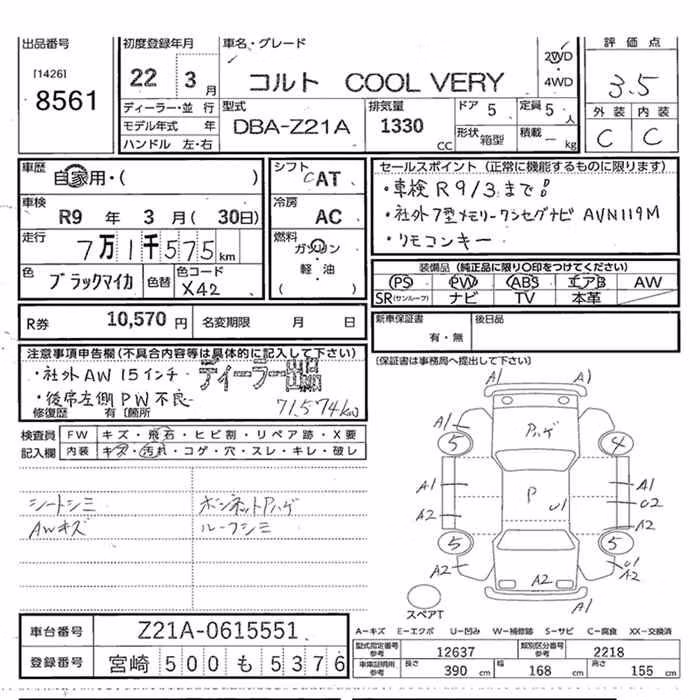 出品番号
[1426]
8561
初度登録年月
22 年 3 月
車名・グレード
コルト COOL VERY
2WD
・
4WD
評価点
3.5
外装 内装
C C
ディーラー・並行
モデル年式 年
ハンドル 左・右
型式
DBA-Z21A
排気量
1330 CC
ドア 5
形状 箱型
定員 5 人
積載 — kg
車歴
自家用・( )
車検
R9 年 3 月 ( 30日)
走行
7万1千575 km
色
ブラックマイカ
色替
色コード
X42
シフト
CAT
冷房
AC
燃料
ガソリン
・
軽・油
( )
セールスポイント (正常に機能するものに限ります)
・車検R9/3まで!
・社外7型メモリーワンセグナビ AVN119M
・リモコンキー
装備品 (純正品に限り○印をつけてください)
PS PW ABS エアB AW
SR(サンルーフ) ナビ TV 本革
R券 10,570 円 名変期限 月 日
新車保証書
有・無
後日品
(保証書は事務局へ提出して下さい)
注意事項申告欄(不具合内容等は具体的に記入して下さい)
・社外AW 15インチ
ディーラー出品
・後席左側PW不良
修復歴 有(箇所
71,574km
検査員
記入欄
FW キズ・飛石・ヒビ割・リペア跡・X要
内装 キズ・汚れ・コゲ・穴・スレ・キレ・破レ
シートシミ
AWキズ
ボンネットハゲ
ルーフシミ
A1 A1
ハゲ
A1 A1
5 4
A1 P U1 A1
A2 U2
A2
5 5
A2 A2 U1
A2
スペアT
車台番号 Z21A-0615551
登録番号 宮崎 500 も 5376
A-キズ E-エクボ U-凹み W-補修跡 S-サビ C-腐食 XX-交換済
型式指定番号
参考
12637
類別区分番号
参考
2218
車庫証明用
参考
長さ 390 cm 幅 168 cm 高さ 155 cm